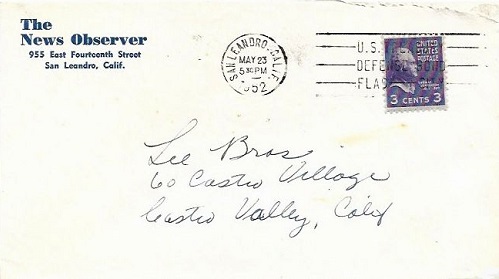 The
News Observer
955 East Fourteenth Street
San Leandro, Calif.
SAN LEANDRO, CALIF.
MAY 23
5 30 PM
1952
U.S.
DEFENSE
UNITED
STATES
POSTAGE
3 CENTS 3
Lee Bros
60 Castro Village
Castro Valley, Calif